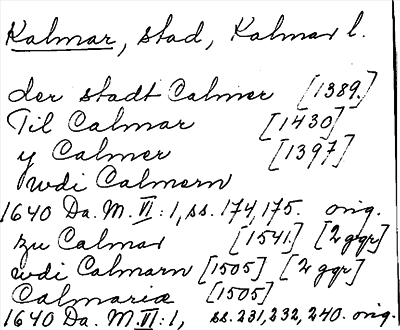 Kalmar, stad, Kalmar l.
der stadt Calmer [1389.]
Til Calmar [1430]
y Calmer [1397]
wdi Calmern
1640 Da. M. VI: 1, ss. 174, 175. orig.
zu Calmar [1541.] [2 ggr]
wdi Calmarn [1505] [2 ggr]
Calmariæ [1505]
1640 Da. M. VI: 1, ss. 231, 232, 240. orig.